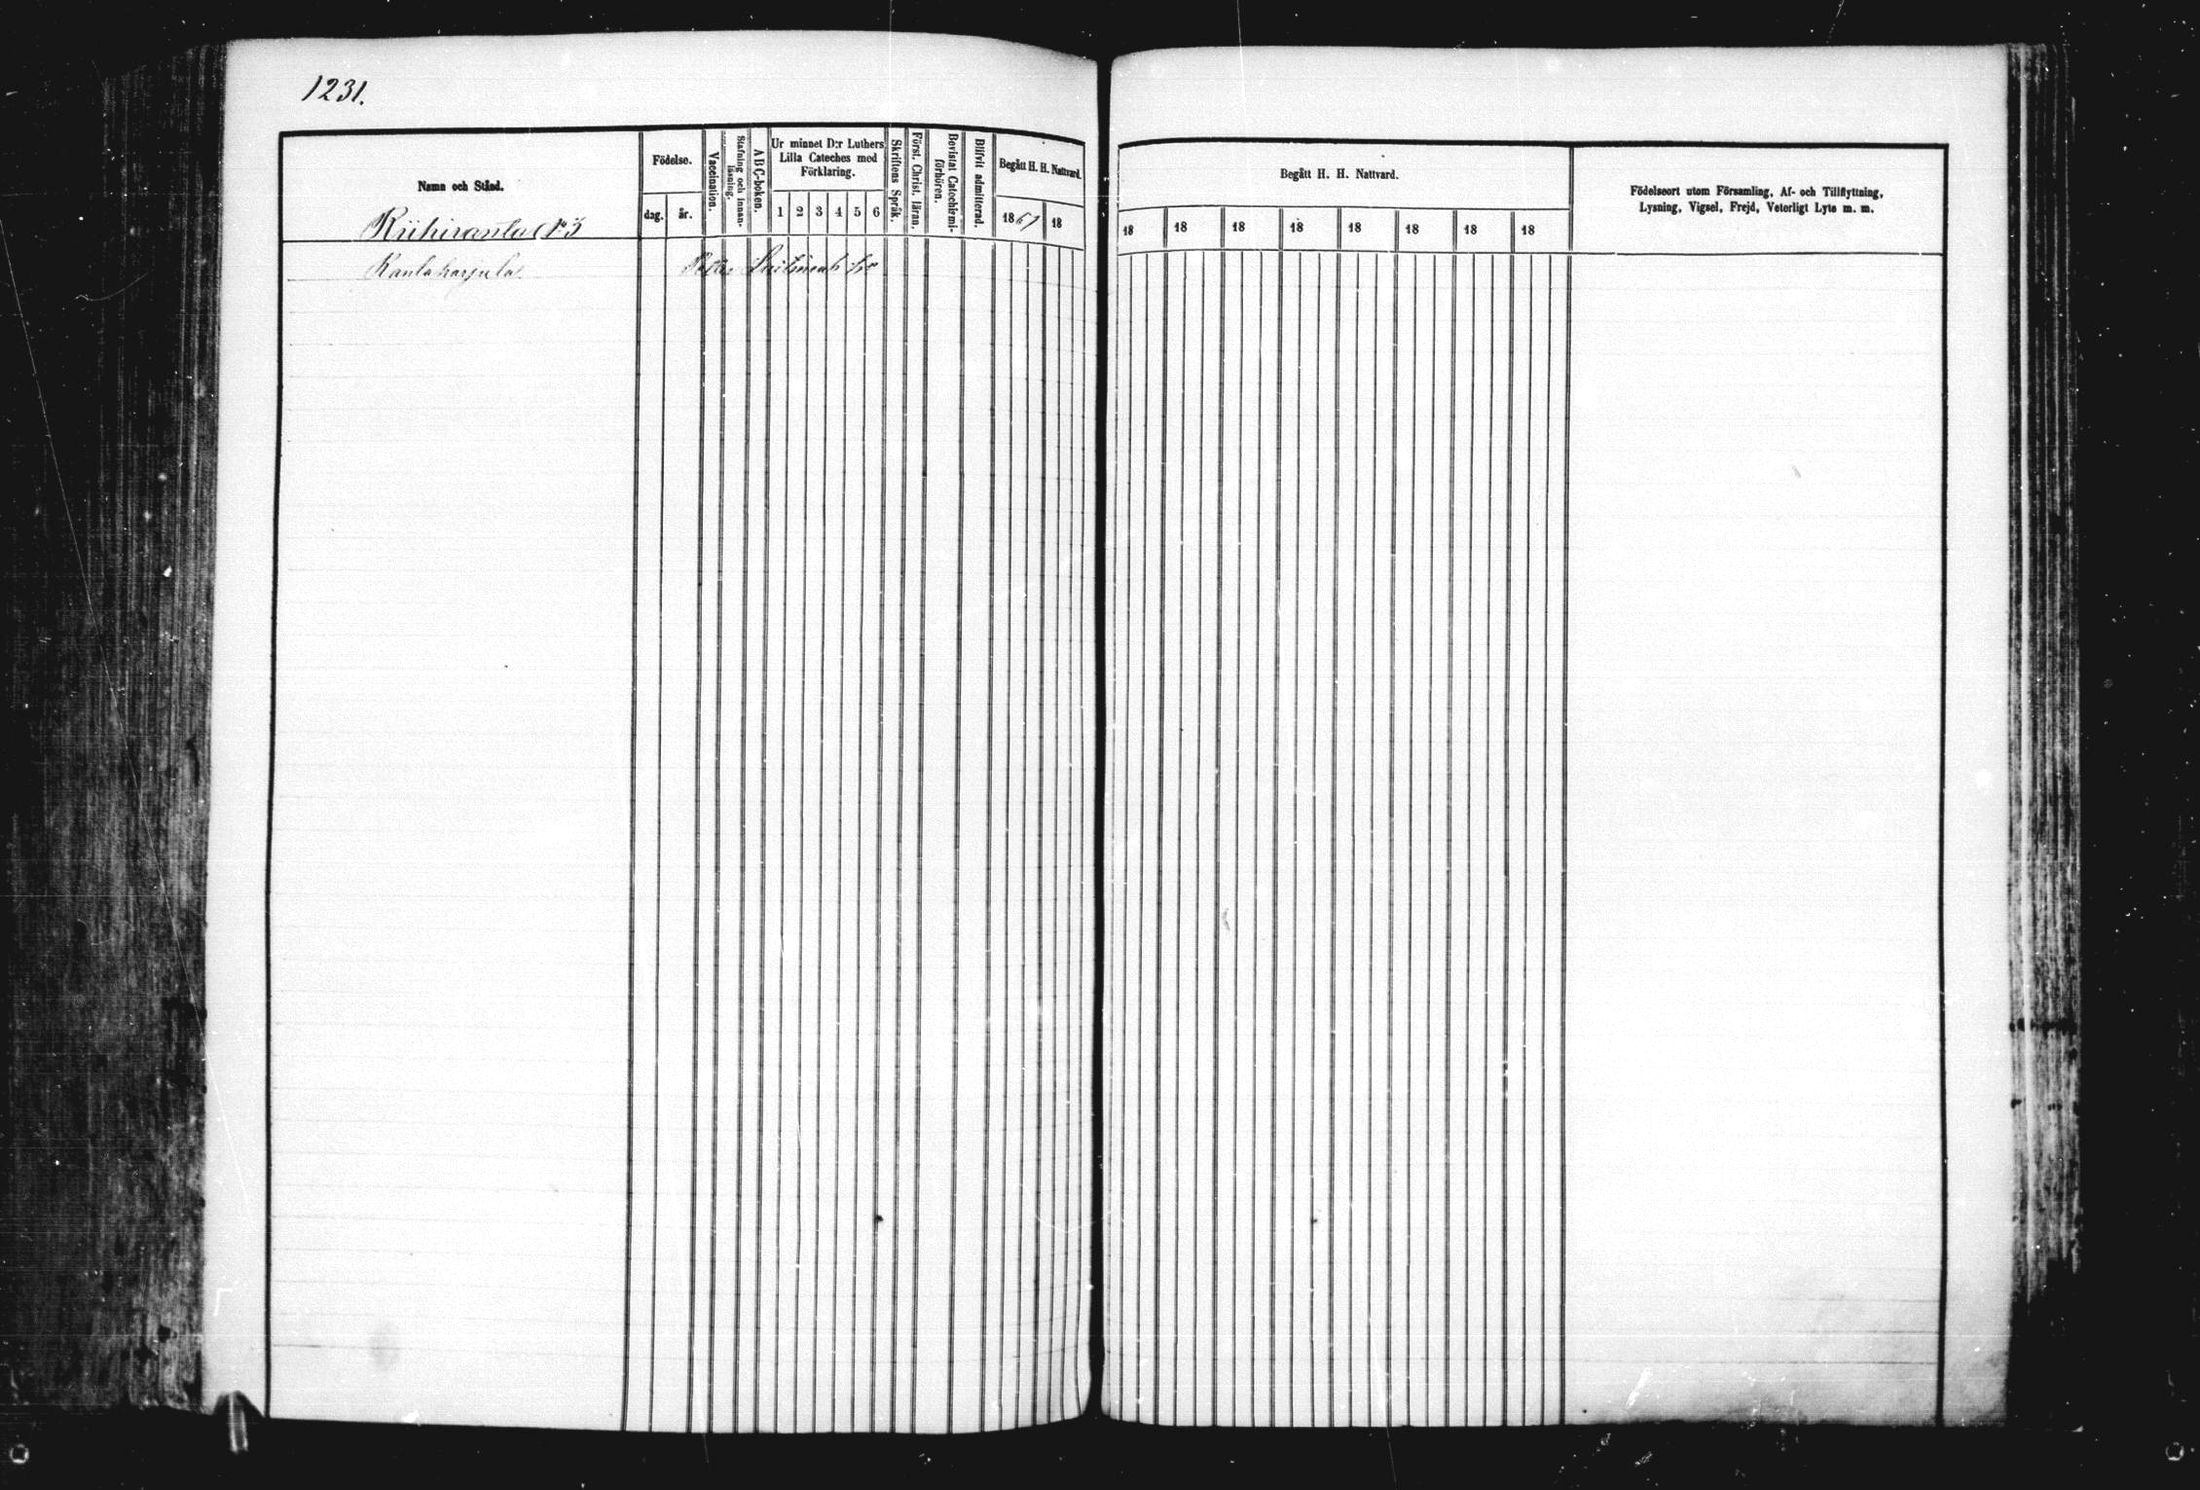 1231.
Namn och Stånd.
Födelse.
dag.
år.
Vaccination.
Stafning och Innan-
läsning.
A B C-boken.
Ur minnet D:r Luthers
Lilla Cateches med
Förklaring.
1 2 3 4 5 6
Skriftens Språk.
Först. Christ. läran.
Bevistat Catechismi-
förhören.
Blifvit admitterad.
Begått H. H. Nattvard.
1867 18
Begått H. H. Nattvard.
18 18 18 18 18 18 18 18
Födelseort utom Församling, Af- och Tillflyttning,
Lysning, Vigsel, Frejd, Veterligt Lyte m. m.
Riihiranta
Rantaharjula